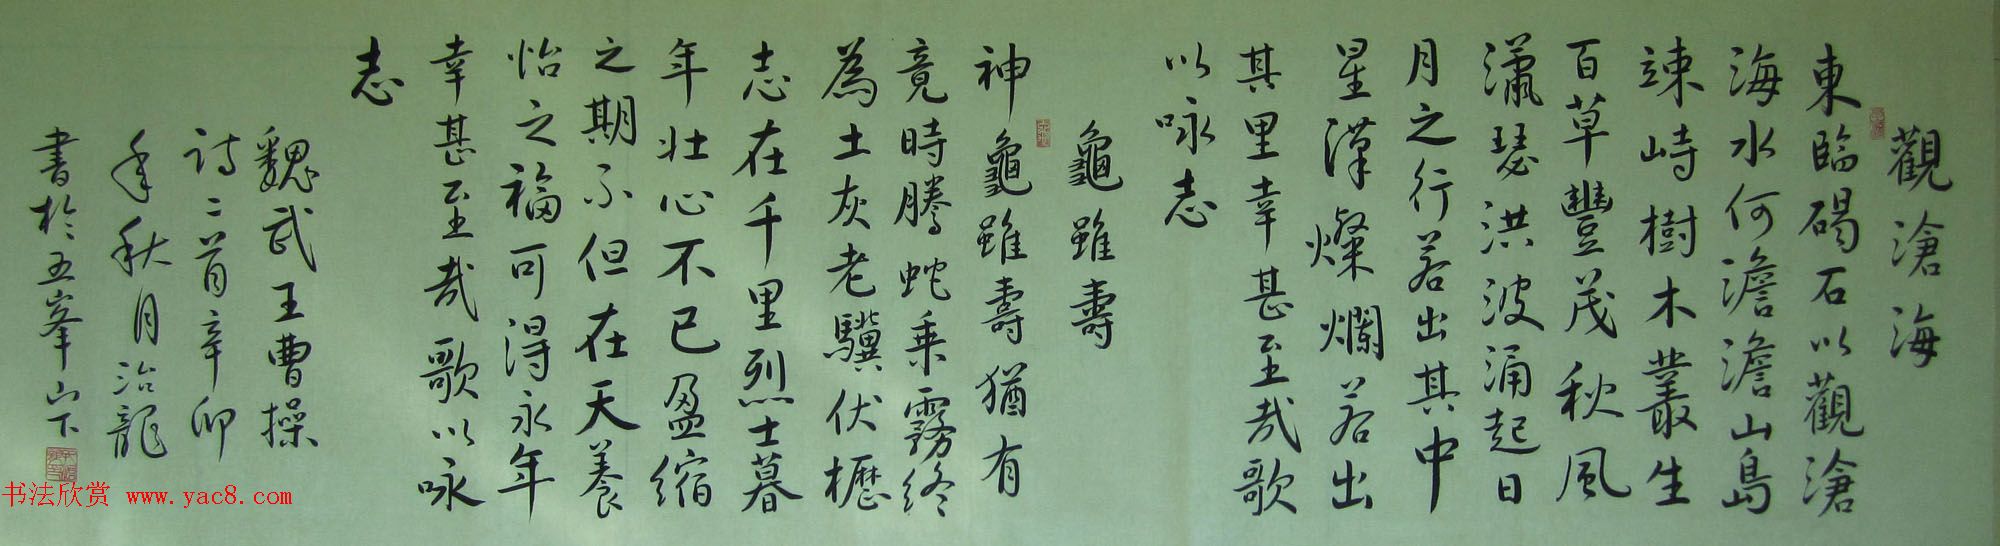 觀滄海
東臨碣石以觀滄
海水何澹澹山島
竦峙樹木叢生
百草豐茂秋風
瀟瑟洪波涌起日
月之行若出其中
星漢燦爛若出
其里幸甚至哉歌
以咏志
龜雖壽
神龜雖壽猶有
竟時騰蛇乘霧終
為土灰老驥伏櫪
志在千里烈士暮
年壯心不已盈缩
之期不但在天養
怡之福可得永年
幸甚至哉歌以咏
志
魏武王曹操
詩二首辛卯
年秋月治龍
書於五峯山下
书法欣赏 www.yac8.com